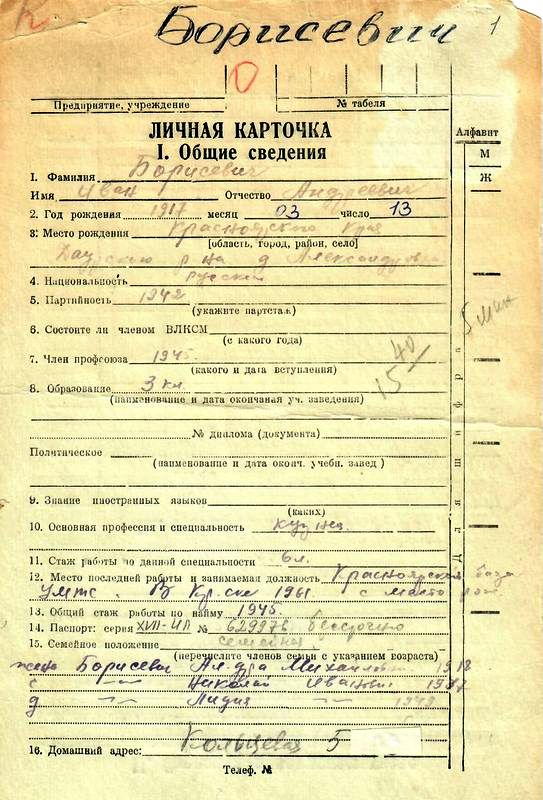 Борисевич 1
Предприятие, учреждение № табеля
ЛИЧНАЯ КАРТОЧКА
I. Общие сведения
Алфавит
М
Ж
1. Фамилия Борисевич
Имя Иван Отчество Андреевич
2. Год рождения 1917 месяц 03 число 13
3. Место рождения Красноярского края
[область, город, район, село]
Даурского р-на д. Александровка
4. Национальность русский
5. Партийность 1942
(укажите партстаж)
6. Состоите ли членом ВЛКСМ
(с какого года)
7. Член профсоюза 1945
(какого и дата вступления)
8. Образование 3 кл.
(наименование и дата окончания уч. заведения)
40
15
5 мин
№ диплома (документа)
Политическое
(наименование и дата оконч. учебн. завед)
9. Знание иностранных языков
(каких)
10. Основная профессия и специальность кузнец
11. Стаж работы по данной специальности 6 л.
12. Место последней работы и занимаемая должность Красноярская база
УМТС. В Кр-ске 1961 с
13. Общий стаж работы по найму 1945
14. Паспорт: серия XVII-ИЛ № 629978 бессрочно
15. Семейное положение семейный
(перечислите членов семьи с указанием возраста)
жена Борисевич Ал-дра Михайловна 1918
с —"— Николай Иванович
д —"— Лидия —"—
16. Домашний адрес: Кольцевая 5
Телеф. №
Для шифра